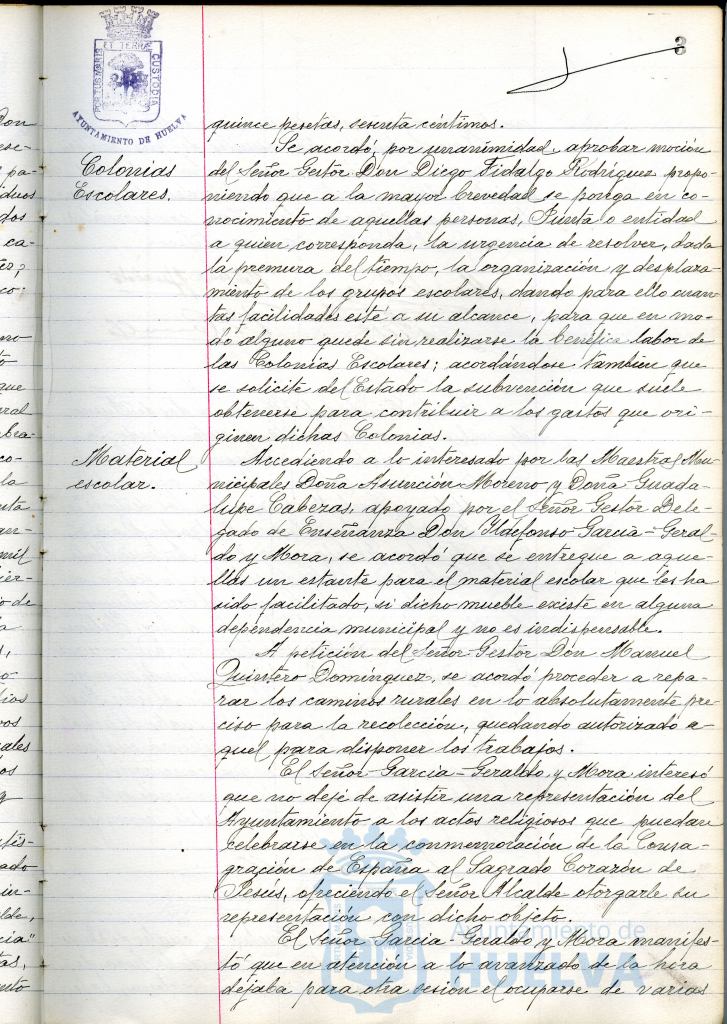 3
PORTUS MARIS
ET TERRAE
CUSTODIA
AYUNTAMIENTO DE HUELVA
quince pesetas, sesenta céntimos.
Colonias
Escolares.
Se acordó, por unanimidad, aprobar moción
del Señor Gestor Don Diego Fidalgo Rodríguez propo-
niendo que a la mayor brevedad se ponga en co-
nocimiento de aquellas personas, Junta o entidad
a quien corresponda, la urgencia de resolver, dada
la premura del tiempo, la organización y desplaza
miento de los grupos escolares, dando para ello cuan-
tas facilidades esté a su alcance, para que en mo-
do alguno quede sin realizarse la benéfica labor de
las Colonias Escolares; acordándose tambien que
se solicite del Estado la subvención que suele
obtenerse para contribuir a los gastos que ori-
ginen dichas Colonias.
Material
escolar.
Accediendo a lo interesado por las Maestras Mu-
nicipales Doña Asunción Moreno y Doña Guada-
lupe Cabezas, apoyado por el Señor Gestor Dele-
gado de Enseñanza Don Ildefonso Garcia-Geral-
do y Mora, se acordó que se entregue a aque-
llas un estante para el material escolar que les ha
sido facilitado, si dicho mueble existe en alguna
dependencia municipal y no es indispensable.
A petición del Señor Gestor Don Manuel
Quintero Domínguez, se acordó proceder a repa-
rar los caminos rurales en lo absolutamente pre-
ciso para la recolección, quedando autorizado a-
quel para disponer los trabajos.
El Señor Garcia-Geraldo y Mora interesó
que no deje de asistir una representación del
Ayuntamiento a los actos religiosos que puedan
celebrarse en la conmemoración de la Consa-
gración de España al Sagrado Corazón de
Jesús, ofreciendo el Señor Alcalde otorgarle su
representación con dicho objeto.
El Señor Garcia-Geraldo y Mora manifes-
tó que en atención a lo avanzado de la hora
dejaba para otra sesión el ocuparse de varias
Ayuntamiento de
HUELVA